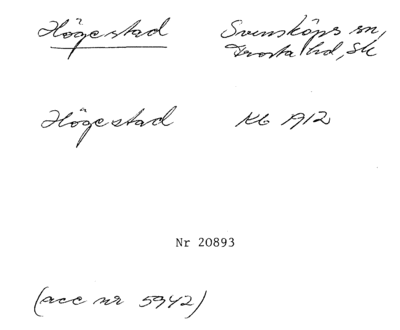 Högestad Svensköps sn,
Frosta hd, Sk
Högestad Kb 1912
Nr 20893
(acc nr 5942)